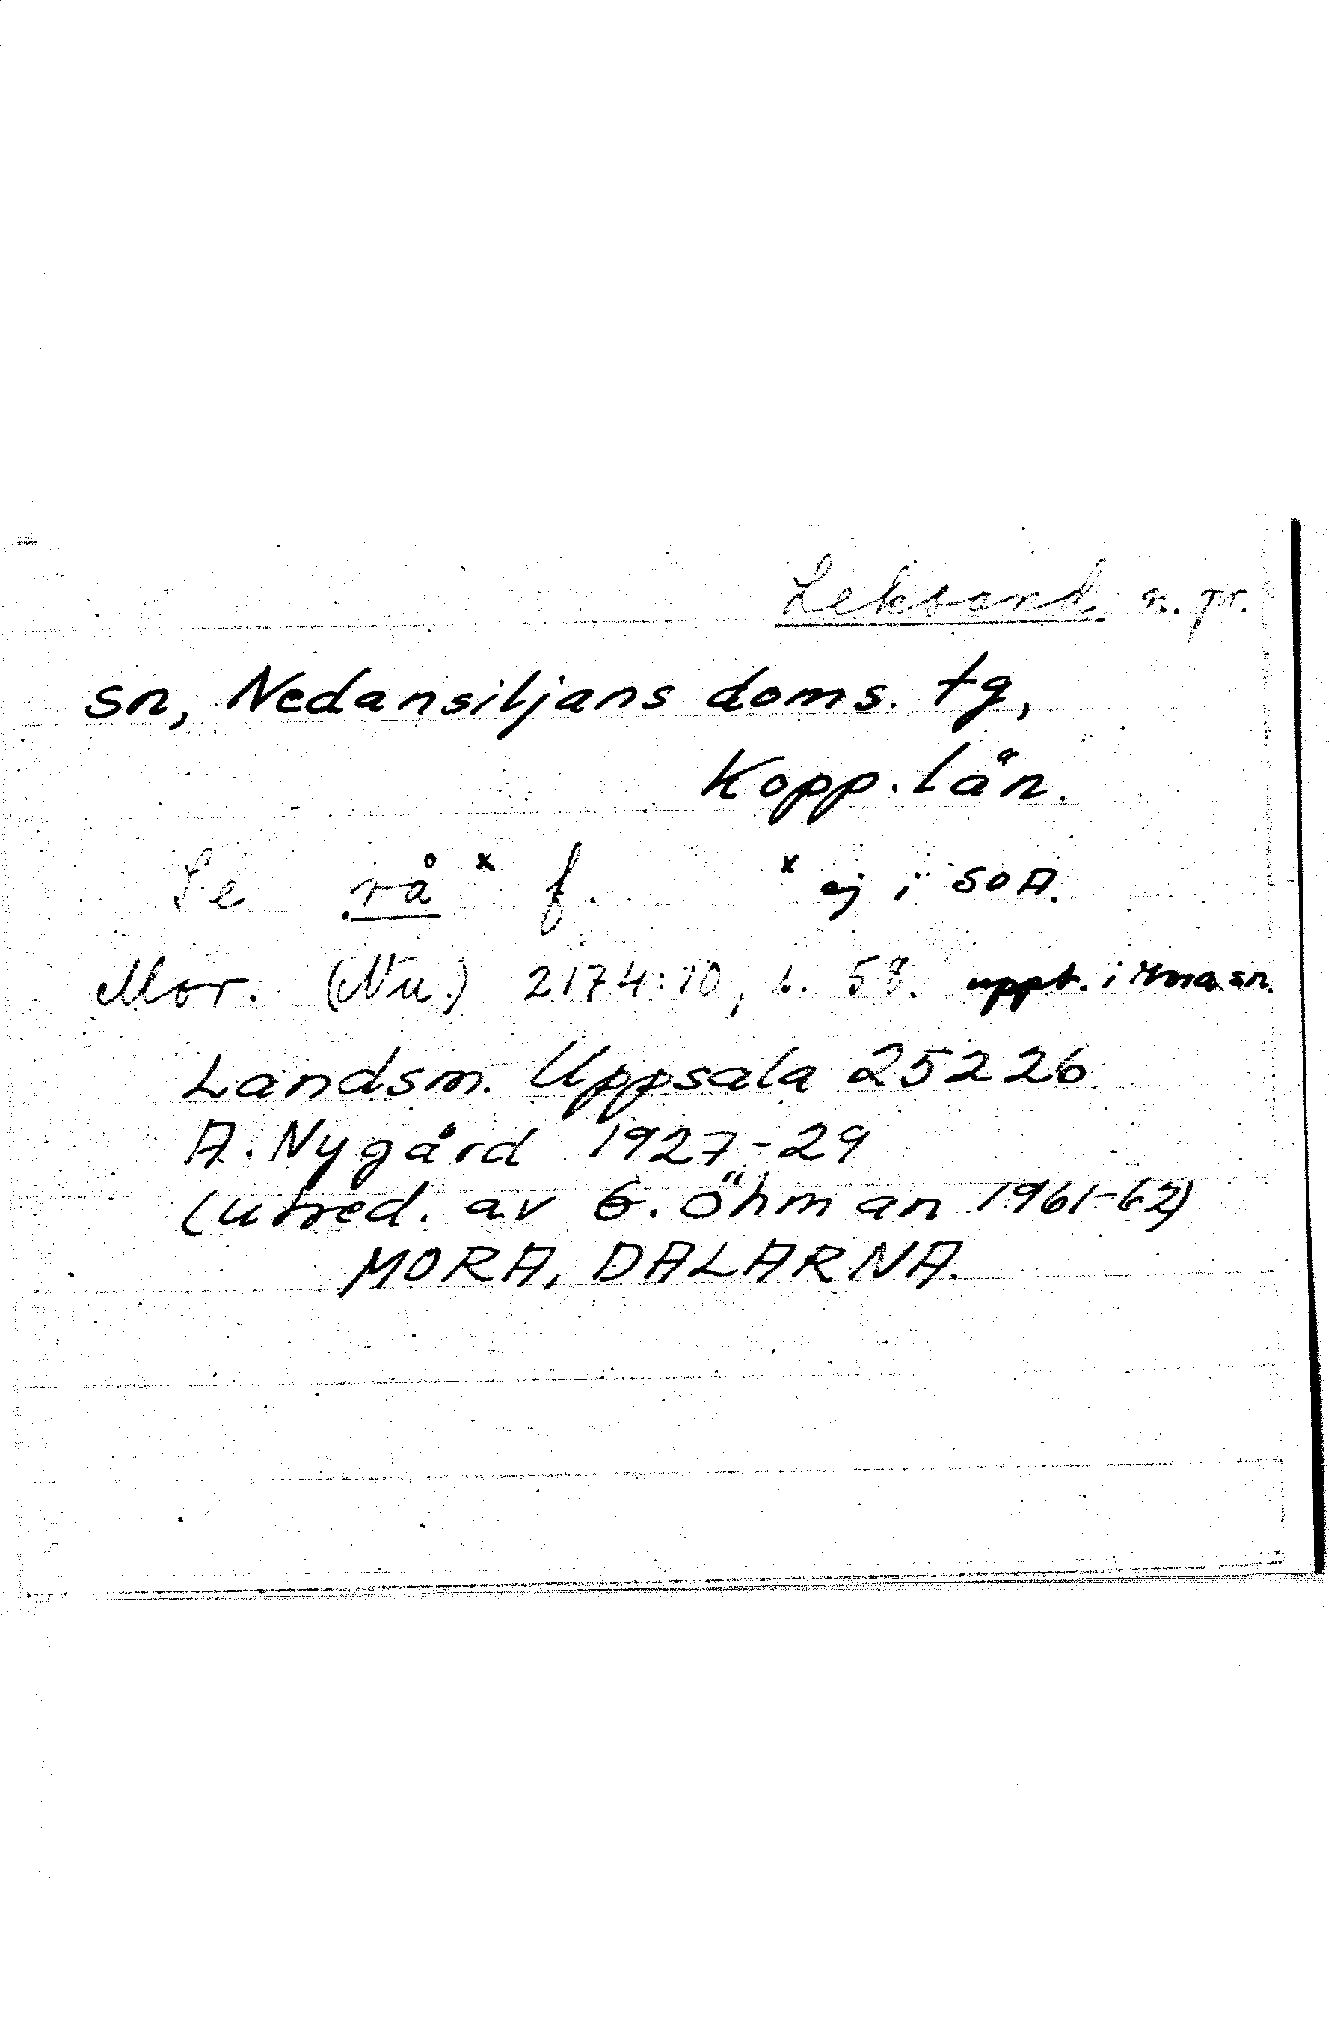 Leksand n. pr.
sn, Nedansiljans doms. tg,
Kopp. län.
Se rå x f. x ej i SOA.
Mor. (Nu.) 2174:10, s. 58. uppt. i Mora sn.
Landsm. Uppsala 25226
A. Nygård 1927-29
(utred. av G. Öhman 1961-62)
MORA, DALARNA.